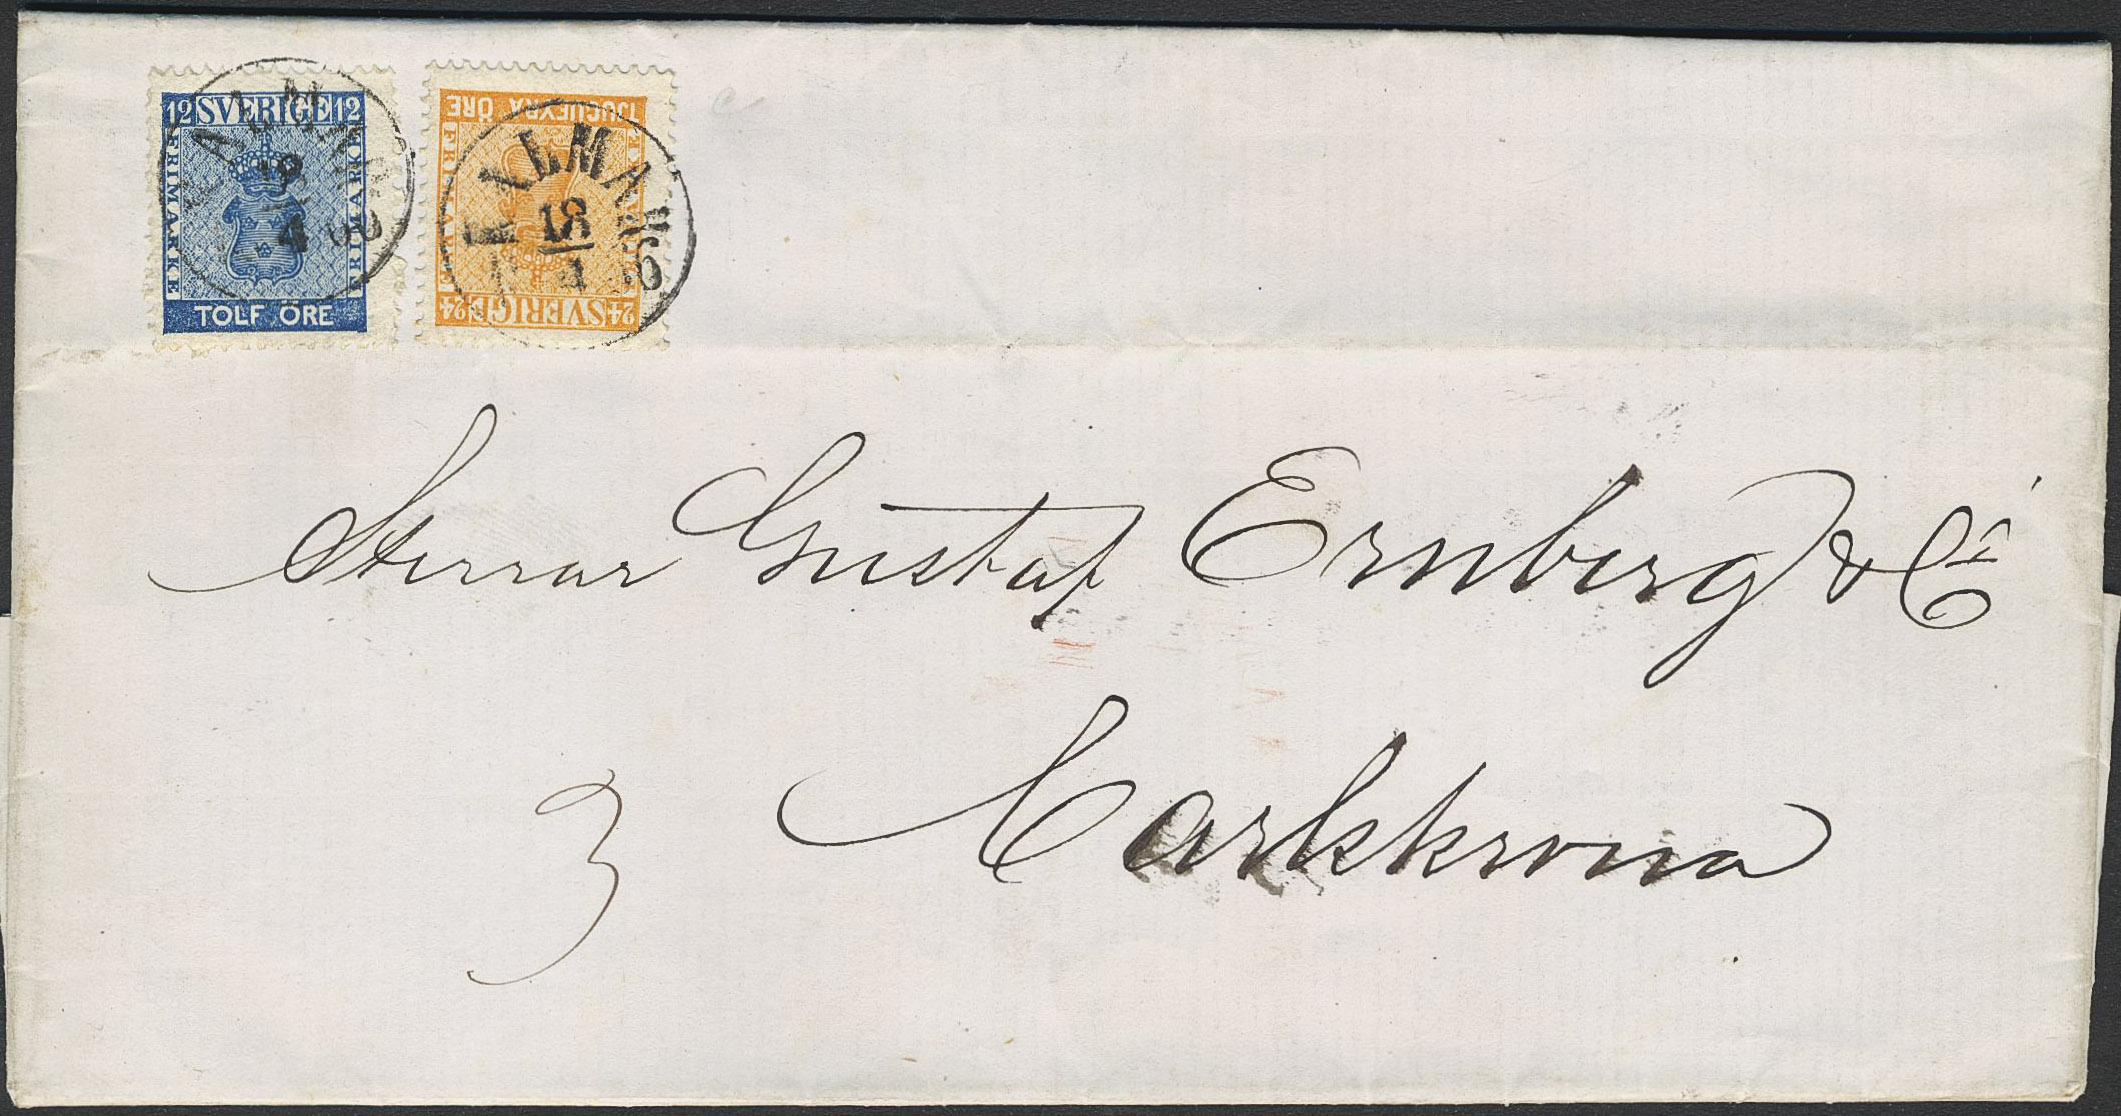 12 SVERIGE 12
FRIMÄRKE
FRIMÄRKE
TOLF ÖRE
KALMAR
18
4
TJUGUFYRA ÖRE
24 SVERIGE 24
KALMAR
18
4
Herrar Gustaf Ernberg & Co
3 Carlskrona